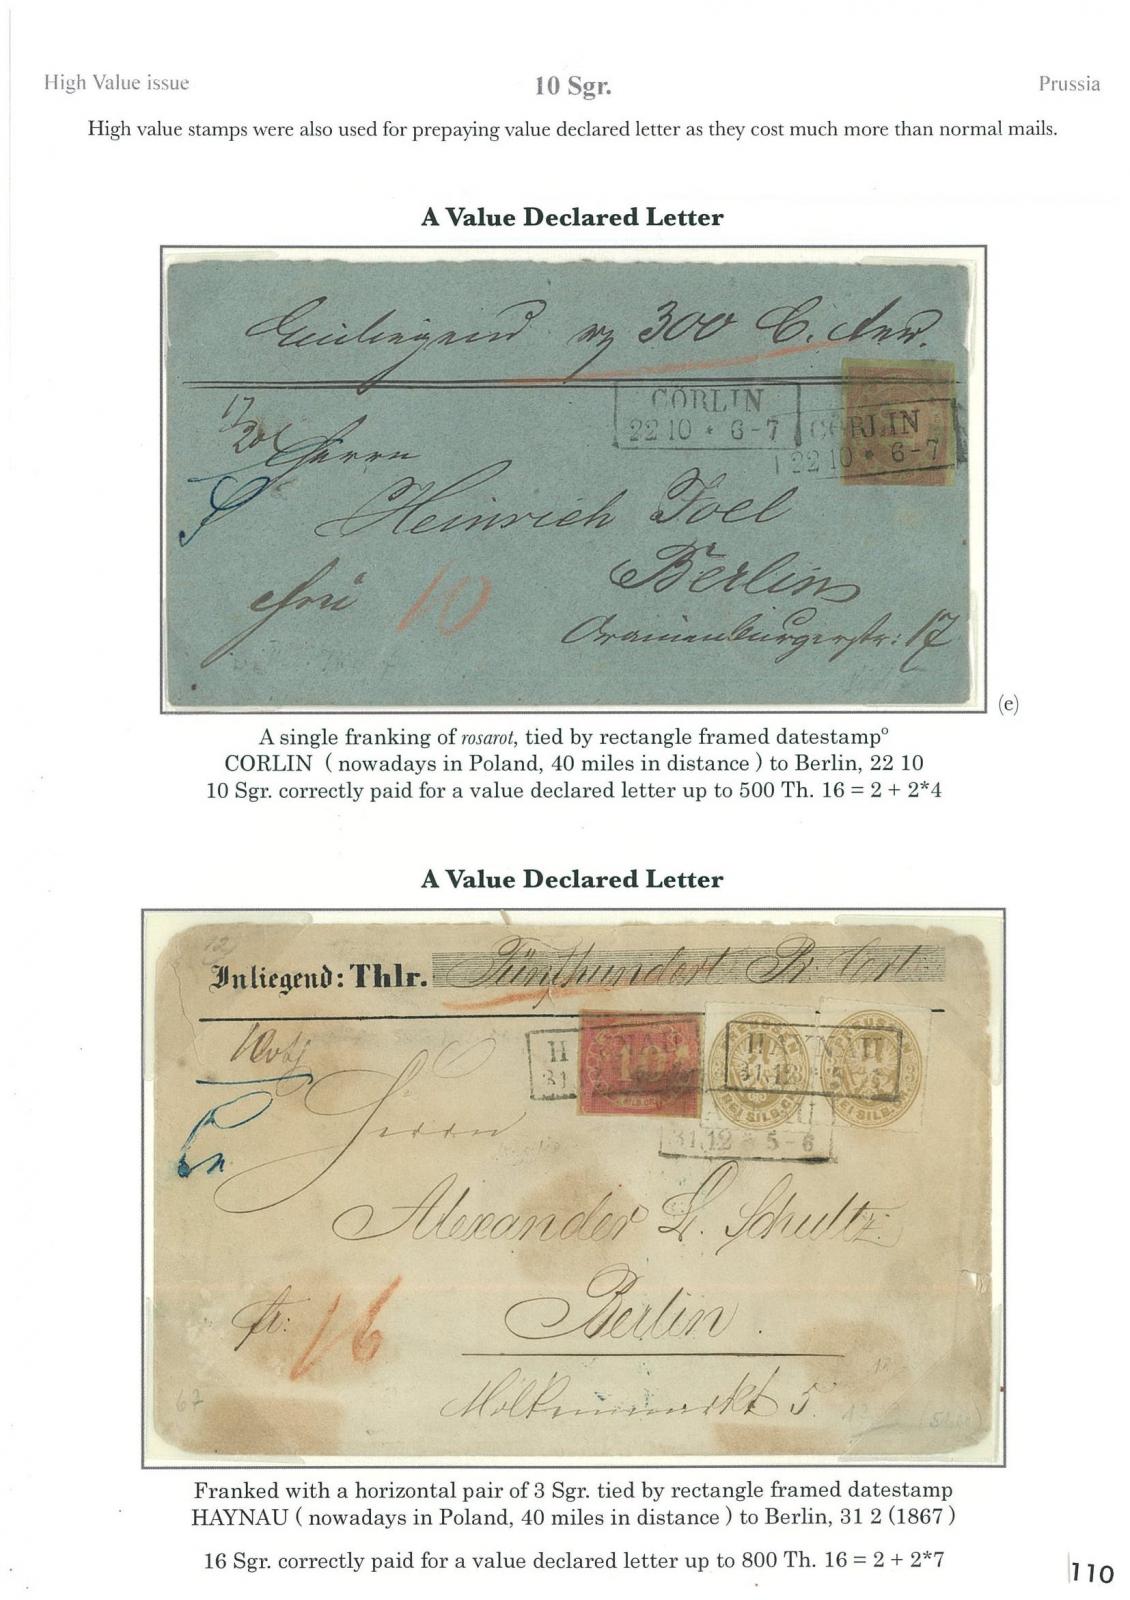 High Value issue
10 Sgr.
Prussia
High value stamps were also used for prepaying value declared letter as they cost much more than normal mails.
A Value Declared Letter
300
CÖRLIN
22 10 * 6-7
CÖRLIN
22 10 * 6-7
Herrn
Heinrich Joel
Berlin
Oranienburgerstr: 17
10
(e)
A single franking of rosarot, tied by rectangle framed datestamp°
CORLIN ( nowadays in Poland, 40 miles in distance ) to Berlin, 22 10
10 Sgr. correctly paid for a value declared letter up to 500 Th. 16 = 2 + 2*4
A Value Declared Letter
Inliegend: Thlr. Fünfhundert Pr Crt
HAYNAU
31 12 * 5-6
31.12 * 5-6
Herrn
Alexander L. Schultz.
fr: 16
Berlin.
Molkenmarkt 5.
67
Franked with a horizontal pair of 3 Sgr. tied by rectangle framed datestamp
HAYNAU ( nowadays in Poland, 40 miles in distance ) to Berlin, 31 2 (1867 )
16 Sgr. correctly paid for a value declared letter up to 800 Th. 16 = 2 + 2*7
110